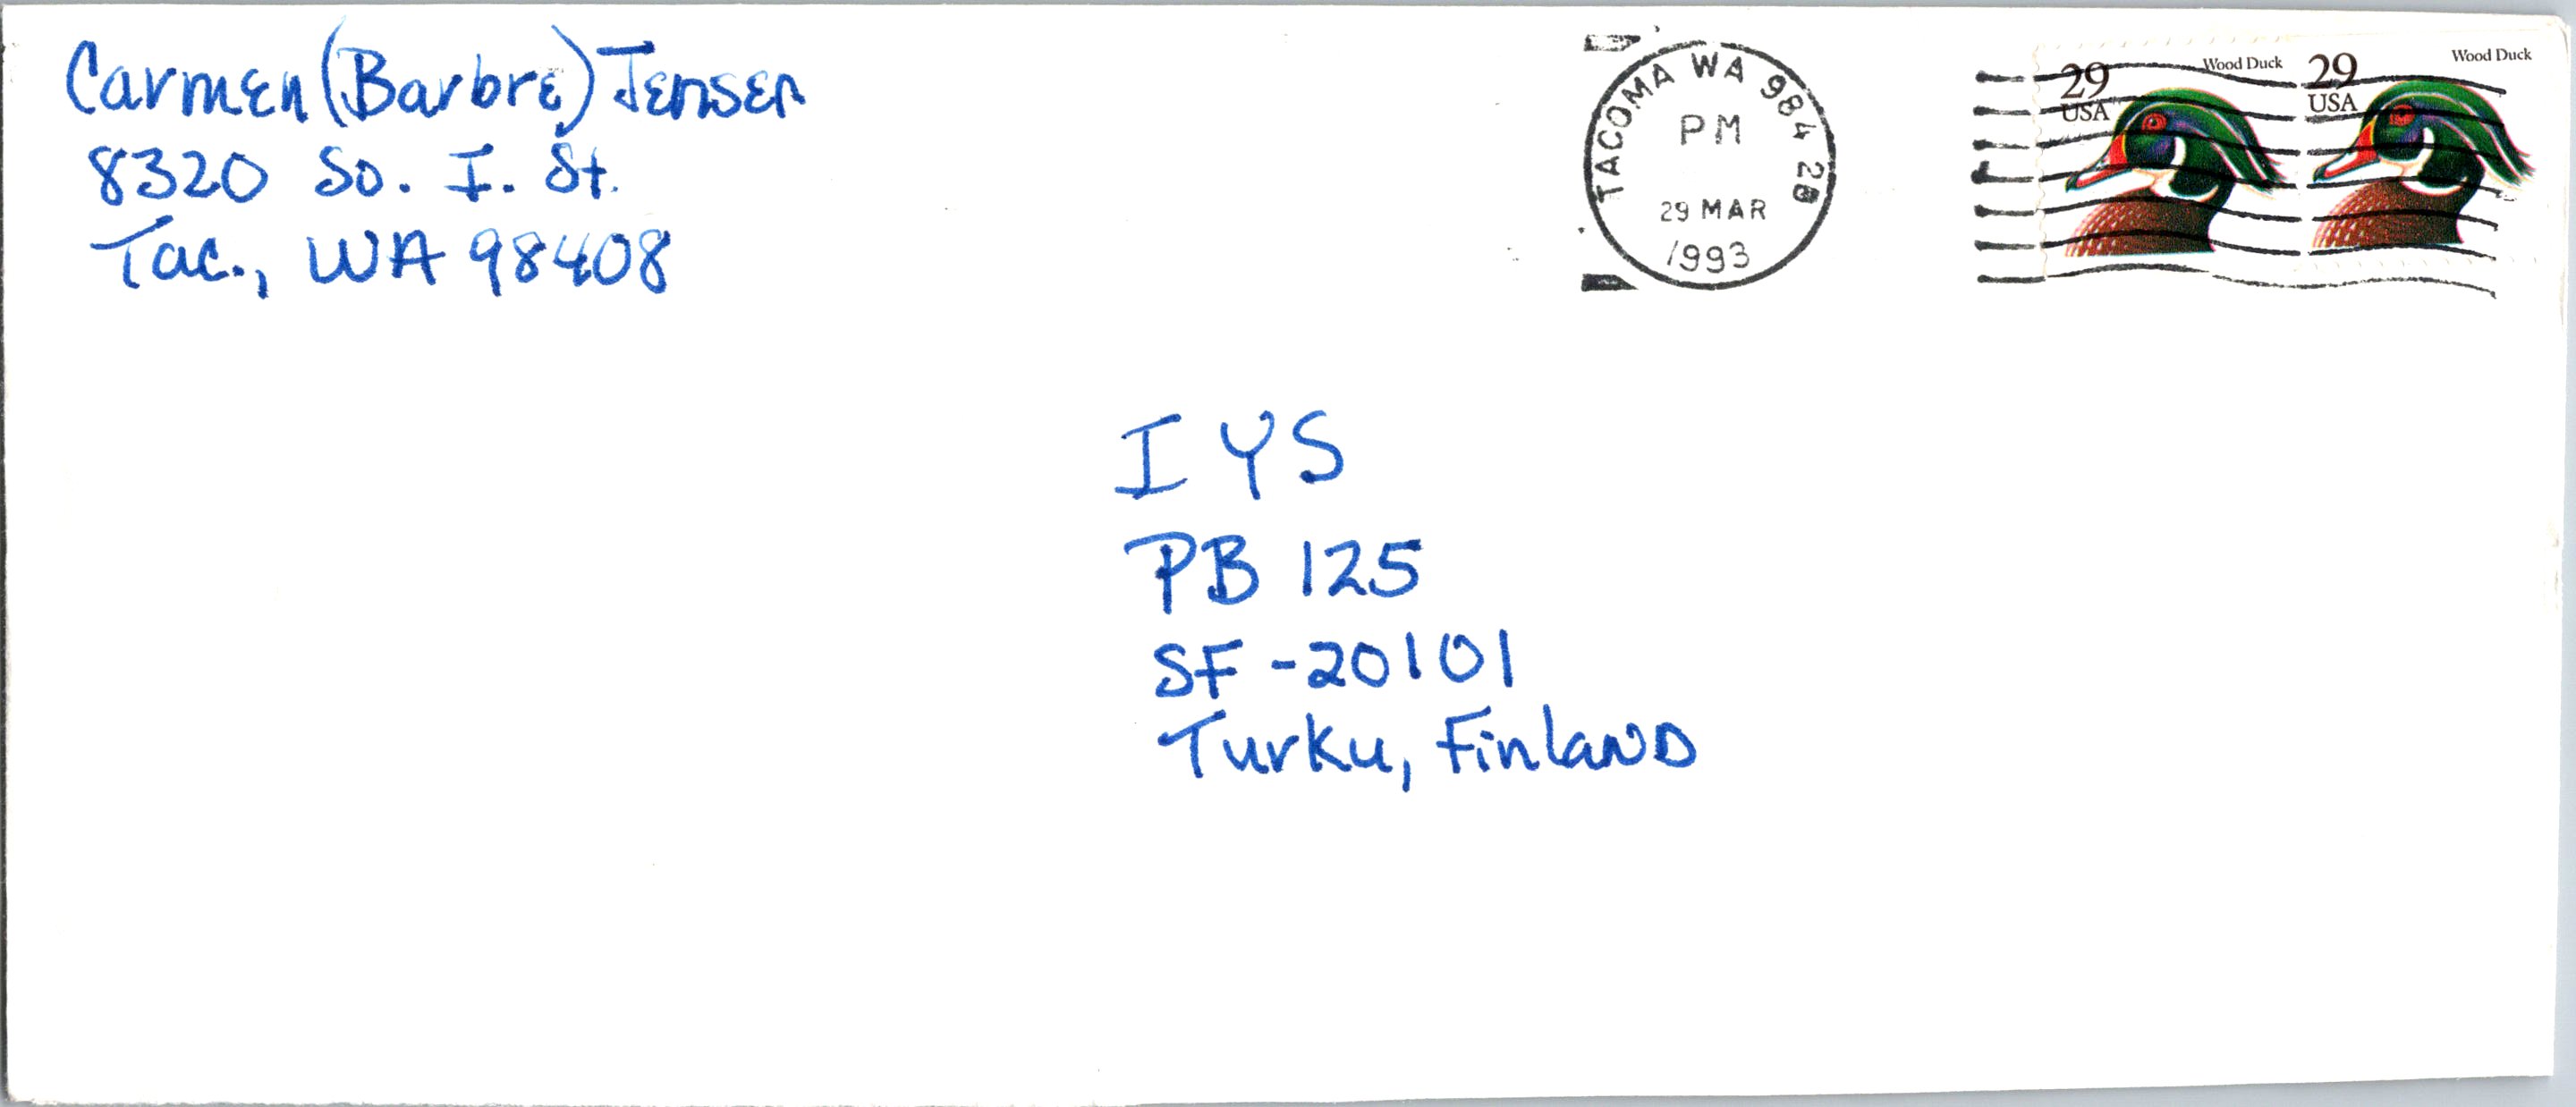 Carmen (Barbre) Jensen
8320 So. I. St.
Tac., WA 98408
TACOMA WA 984
PM
29 MAR
1993
29
USA
Wood Duck
29
USA
Wood Duck
I Y S
PB 125
SF-20101
Turku, Finland